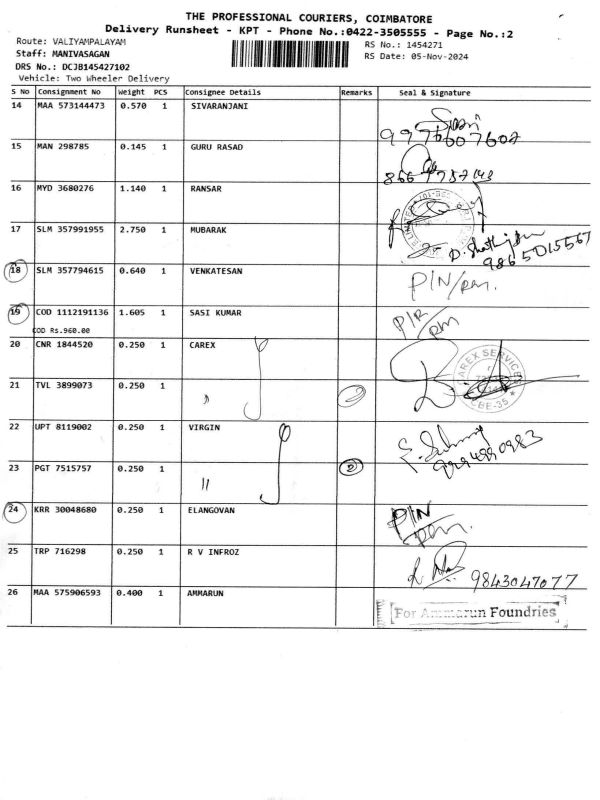 THE PROFESSIONAL COURIERS, COIMBATORE
Delivery Runsheet - KPT - Phone No.:0422-3505555 - Page No.:2
Route: VALIYAMPALAYAM
RS No.: 1454271
Staff: MANIVASAGAN
RS Date: 05-Nov-2024
DRS No.: DCJB145427102
Vehicle: Two Wheeler Delivery
S No Consignment No Weight PCS Consignee Details Remarks Seal & Signature
14 MAA 573144473 0.570 1 SIVARANJANI
15 MAN 298785 0.145 1 GURU RASAD
16 MYD 3680276 1.140 1 RANSAR
17 SLM 357991955 2.750 1 MUBARAK
9865015567
18 SLM 357794615 0.640 1 VENKATESAN PIN/
19 COD 1112191136 1.605 1 SASI KUMAR
COD Rs.960.00
20 CNR 1844520 0.250 1 CAREX
CAREX SERVICES
CBE-35
21 TVL 3899073 0.250 1 "
22 UPT 8119002 0.250 1 VIRGIN
23 PGT 7515757 0.250 1 " 2
24 KRR 30048680 0.250 1 ELANGOVAN PIN
25 TRP 716298 0.250 1 R V INFROZ 9843047077
26 MAA 575906593 0.400 1 AMMARUN
For Ammarun Foundries